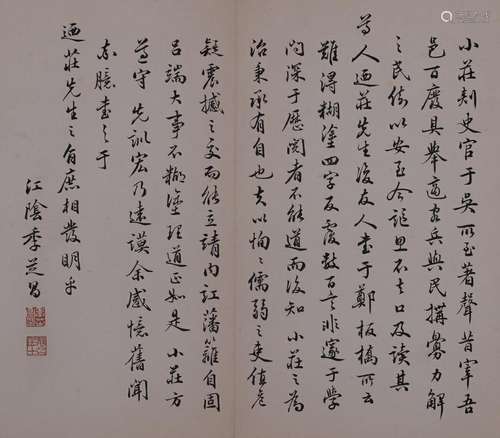 小莊刺史官于吳所至著聲昔宰吾
邑百廢具舉適有兵與民搆釁力解
之民倚以安至今謳思不去口及讀其
尊人迺莊先生後友人書于鄭板橋所云
難得糊塗四字反覆數百言非邃于學
問深于歷閱者不能道而後知小莊之為
治秉承有自也夫以恂〻儒弱之吏值危
疑震撼之交而能立靖內訌藩籬自固
呂端大事不糊塗理道正如是 小莊方
遵守 先訓宏乃遠謨余感憶舊聞
亦臆書之于
迺莊先生之旨庶相發明乎
江陰季芝昌